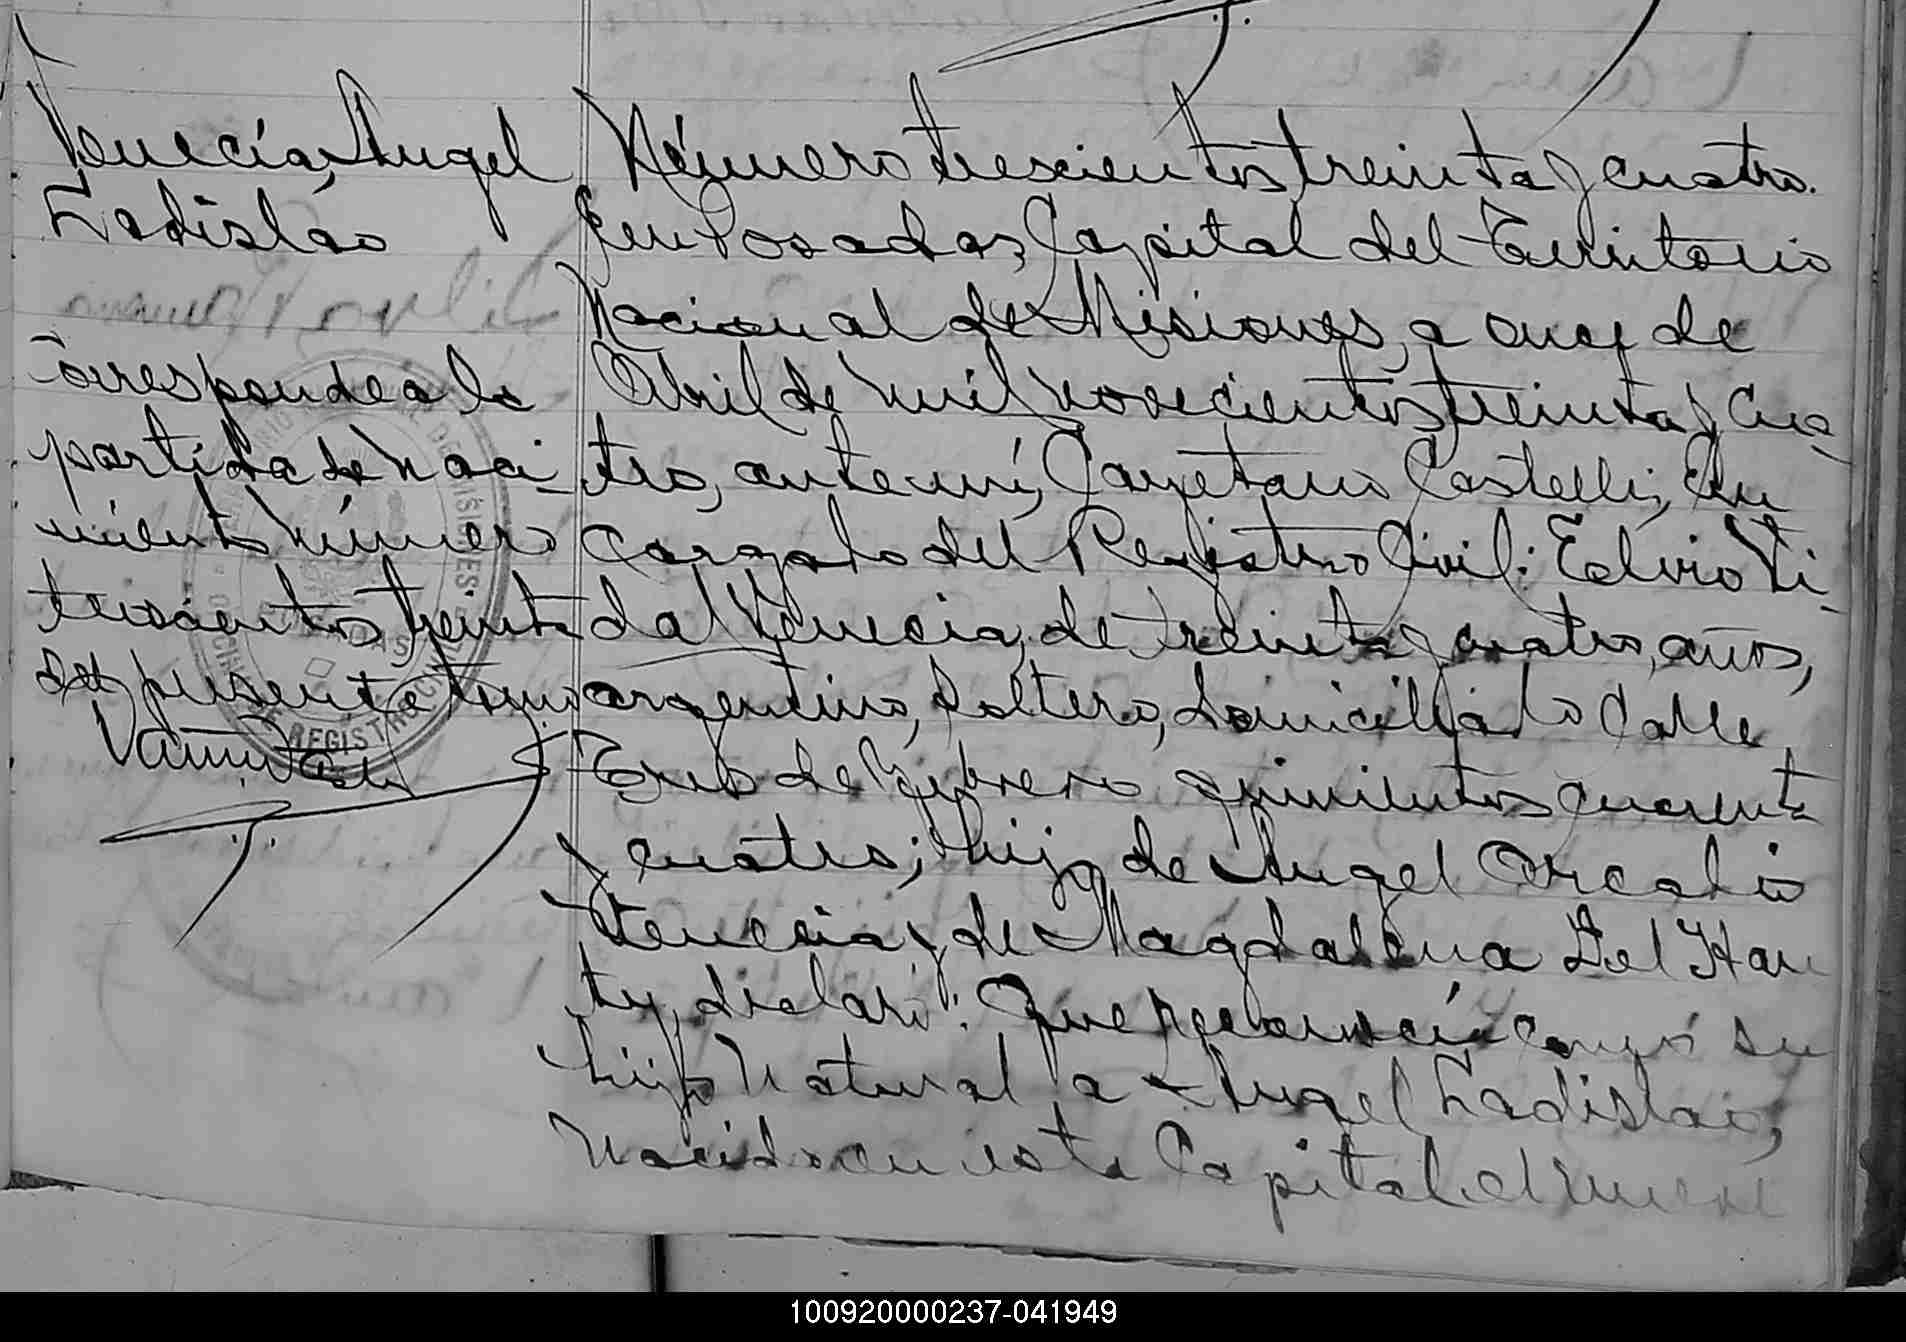 Venecia, Angel
Ladislao
Corresponde a la
partida de naci-
miento número
trescientos treinta
del presente tomo
Número trescientos treinta y cuatro.
En Posadas, Capital del Territorio
Nacional de Misiones, a once de
Abril de mil novecientos treinta y cua-
tro, ante mí, Cayetano Castelli, En
cargado del Registro Civil: Edivio Vi-
dal Venecia, de treinta y cuatro años,
argentino, soltero, domiciliado Calle
Tres de Febrero quinientos cuarenta
y cuatro; hijo de Angel Orcalio
Venecia y de Magdalena Del Han
ty, declaró: Que reconocía como su
hijo natural a Angel Ladislao,
nacido en esta Capital el nueve
REGISTRO CIVIL
100920000237-041949